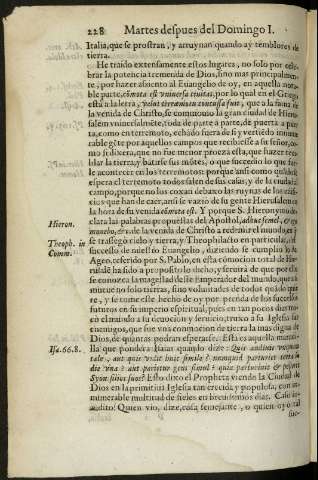 228 Martes despues del Domingo I.
Italia, que se prostran, y arruynan quando ay temblores de
tierra.
He traido extensamente estos lugares, no solo por cele-
brar la potencia tremenda de Dios, sino mas principalmen-
te, por hazer aßiento al Euangelio de oy, en aquella nota-
ble parte, cōmota est vniuersa ciuitas, por lo qual en el Griego
està a la letra, velut terraemotu concussa fuit, que a la fama de
la venida de Christo, se commouio la gran ciudad de Hieru-
salen vniuersalmente, toda de parte à parte, de puerta a puer-
ta, como en terremoto, echãdo fuera de si y vertiẽdo innume-
rable gẽte por aquellos campos que recibiesse a su señor, co-
mo si dixera, que no fue menor proeza esta, que hazer tem-
blar la tierra, y batirse sus mõtes, o que succedio lo que sue-
le acontecer en los terremotos: porque ansi como quando se
espera el terremoto todos salen de sus casas, y de la ciudad al
campo, porque no los coxan debaxo las ruynas de los edifi-
cios que han de caer, ansi se vazio de su gente Hierusalem en
la hora de su venida cōmota est. Y porque S. Hieronymo de-
Hieron. clara las palabras propuestas del Apostol, adhuc semel, & ego
mouebo, &c. de la venida de Christo a redemir el mundo, en que
Theoph. in se trasegò cielo y tierra, y Theophilacto en particular, del
Comm. successo de nuestro Euangelio, diziendo se cumplio lo de
Ageo, referido por S. Pablo, en esta cōmocion total de Hie-
rusalẽ ha sido a proposito lo dicho, y seruira de que por ello
se conozca la magestad deste Emperador del mundo, que assi
mueue no solo tierras, sino voluntades de todos quãdo quie-
re, y se tome este hecho de oy por prenda de los successos
futuros en su imperio espiritual, pues en tan pocos dias mo-
uio el mundo a su deuocion y seruicio, truxo a su Iglesia sus
enemigos, que fue vna commocion de tierra la mas digna de
Dios, de quantas podran esperarse. Esta es aquella maraui-
Isa. 66.8. lla que pondera Isaias quando dize: Quis audiuit vnquam
tale, aut quis vidit huic simile? nunquid parturiet terra in
die vna? aut parietur gens simul? quia parturiuit & peperit
Syon filios suos? Esto dixo el Propheta viendo la Ciudad de
Dios en la primitiua Iglesia tan crecida y populosa, con in-
numerable multitud de fieles en breuissimos dias. Caso in-
audito! Quien vio, dize, cosa semejante, o quien oyò tal
suc-